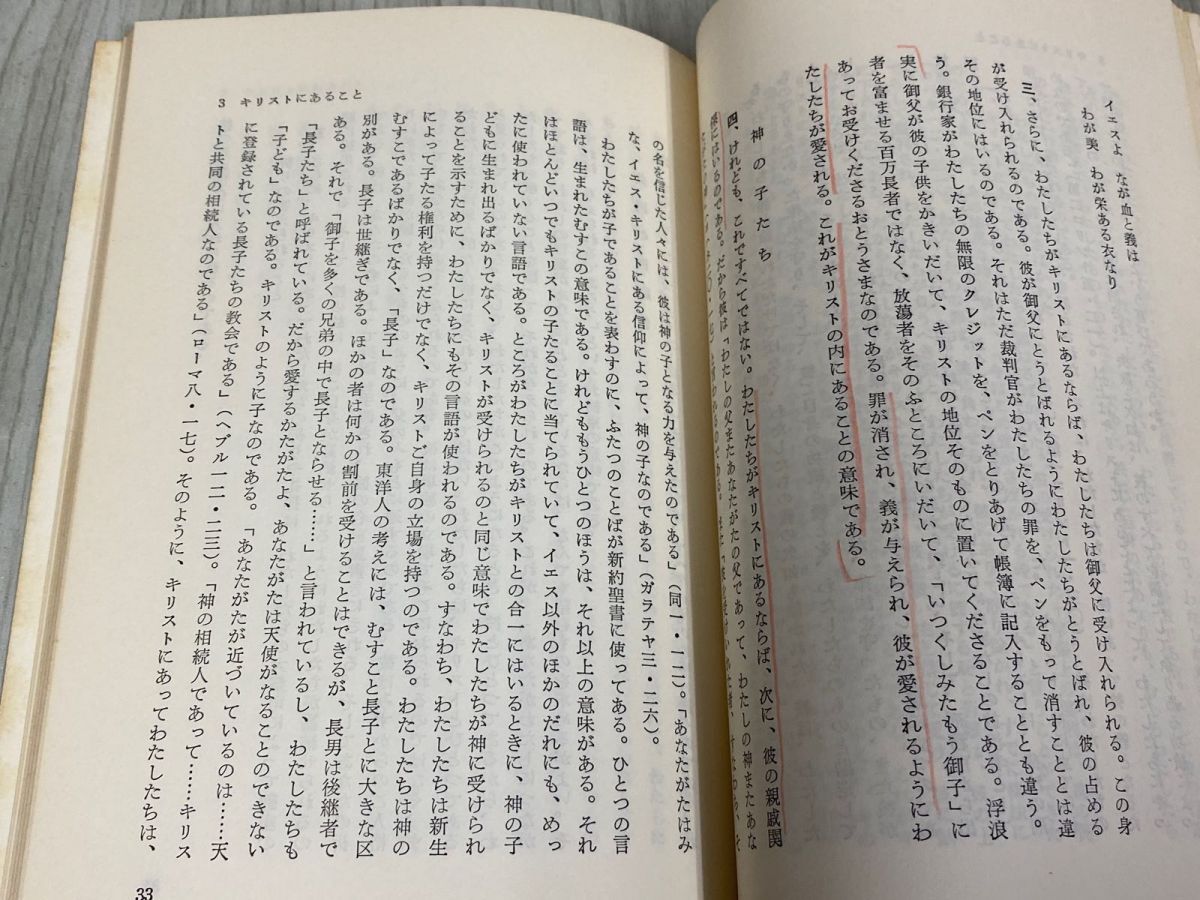 イエスよ　なが血と義は
わが美　わが栄ある衣なり
三、さらに、わたしたちがキリストにあるならば、わたしたちは御父に受け入れられる。この身
が受け入れられるのである。彼が御父にとうとばれるようにわたしたちがとうとばれ、彼の占める
その地位にはいるのである。それはただ裁判官がわたしたちの罪を、ペンをもって消すこととは違
う。銀行家がわたしたちの無限のクレジットを、ペンをとりあげて帳簿に記入することとも違う。
実に御父が彼の子供をかきいだいて、キリストの地位そのものに置いてくださることである。浮浪
者を富ませる百万長者ではなく、放蕩者をそのふところにいだいて、「いつくしみたもう御子」に
あってお受けくださるおとうさまなのである。罪が消され、義が与えられ、彼が愛されるようにわ
たしたちが愛される。これがキリストの内にあることの意味である。
神の子たち
四、けれども、これですべてではない。わたしたちがキリストにあるならば、次に、彼の親戚関
係にはいるのである。だから彼は「わたしの父またあなたがたの父であって、わたしの神またあな
3　キリストにあること
の名を信じた人々には、彼は神の子となる力を与えたのである」（同一・一二）。「あなたがたはみ
な、イエス・キリストにある信仰によって、神の子なのである」（ガラテヤ三・二六）。
わたしたちが子であることを表わすのに、ふたつのことばが新約聖書に使ってある。ひとつの言
語は、生まれたむすこの意味である。けれどももうひとつのほうは、それ以上の意味がある。それ
はほとんどいつでもキリストの子たることに当てられていて、イエス以外のほかのだれにも、めっ
たに使われていない言語である。ところがわたしたちがキリストとの合一にはいるときに、神の子
どもに生まれ出るばかりでなく、キリストが受けられるのと同じ意味でわたしたちが神に受けられ
ることを示すために、わたしたちにもその言語が使われるのである。すなわち、わたしたちは新生
によって子たる権利を持つだけでなく、キリストご自身の立場を持つのである。わたしたちは神の
むすこであるばかりでなく、「長子」なのである。東洋人の考えには、むすこと長子とに大きな区
別がある。長子は世継ぎである。ほかの者は何かの割前を受けることはできるが、長男は後継者で
ある。それで「御子を多くの兄弟の中で長子とならせる……」と言われているし、わたしたちも
「長子たち」と呼ばれている。だから愛するかたがたよ、あなたがたは天使がなることのできない
「子ども」なのである。キリストのように子なのである。「あなたがたが近づいているのは……天
に登録されている長子たちの教会である」（ヘブル一二・二三）。「神の相続人であって……キリス
トと共同の相続人なのである」（ローマ八・一七）。そのように、キリストにあってわたしたちは、
33